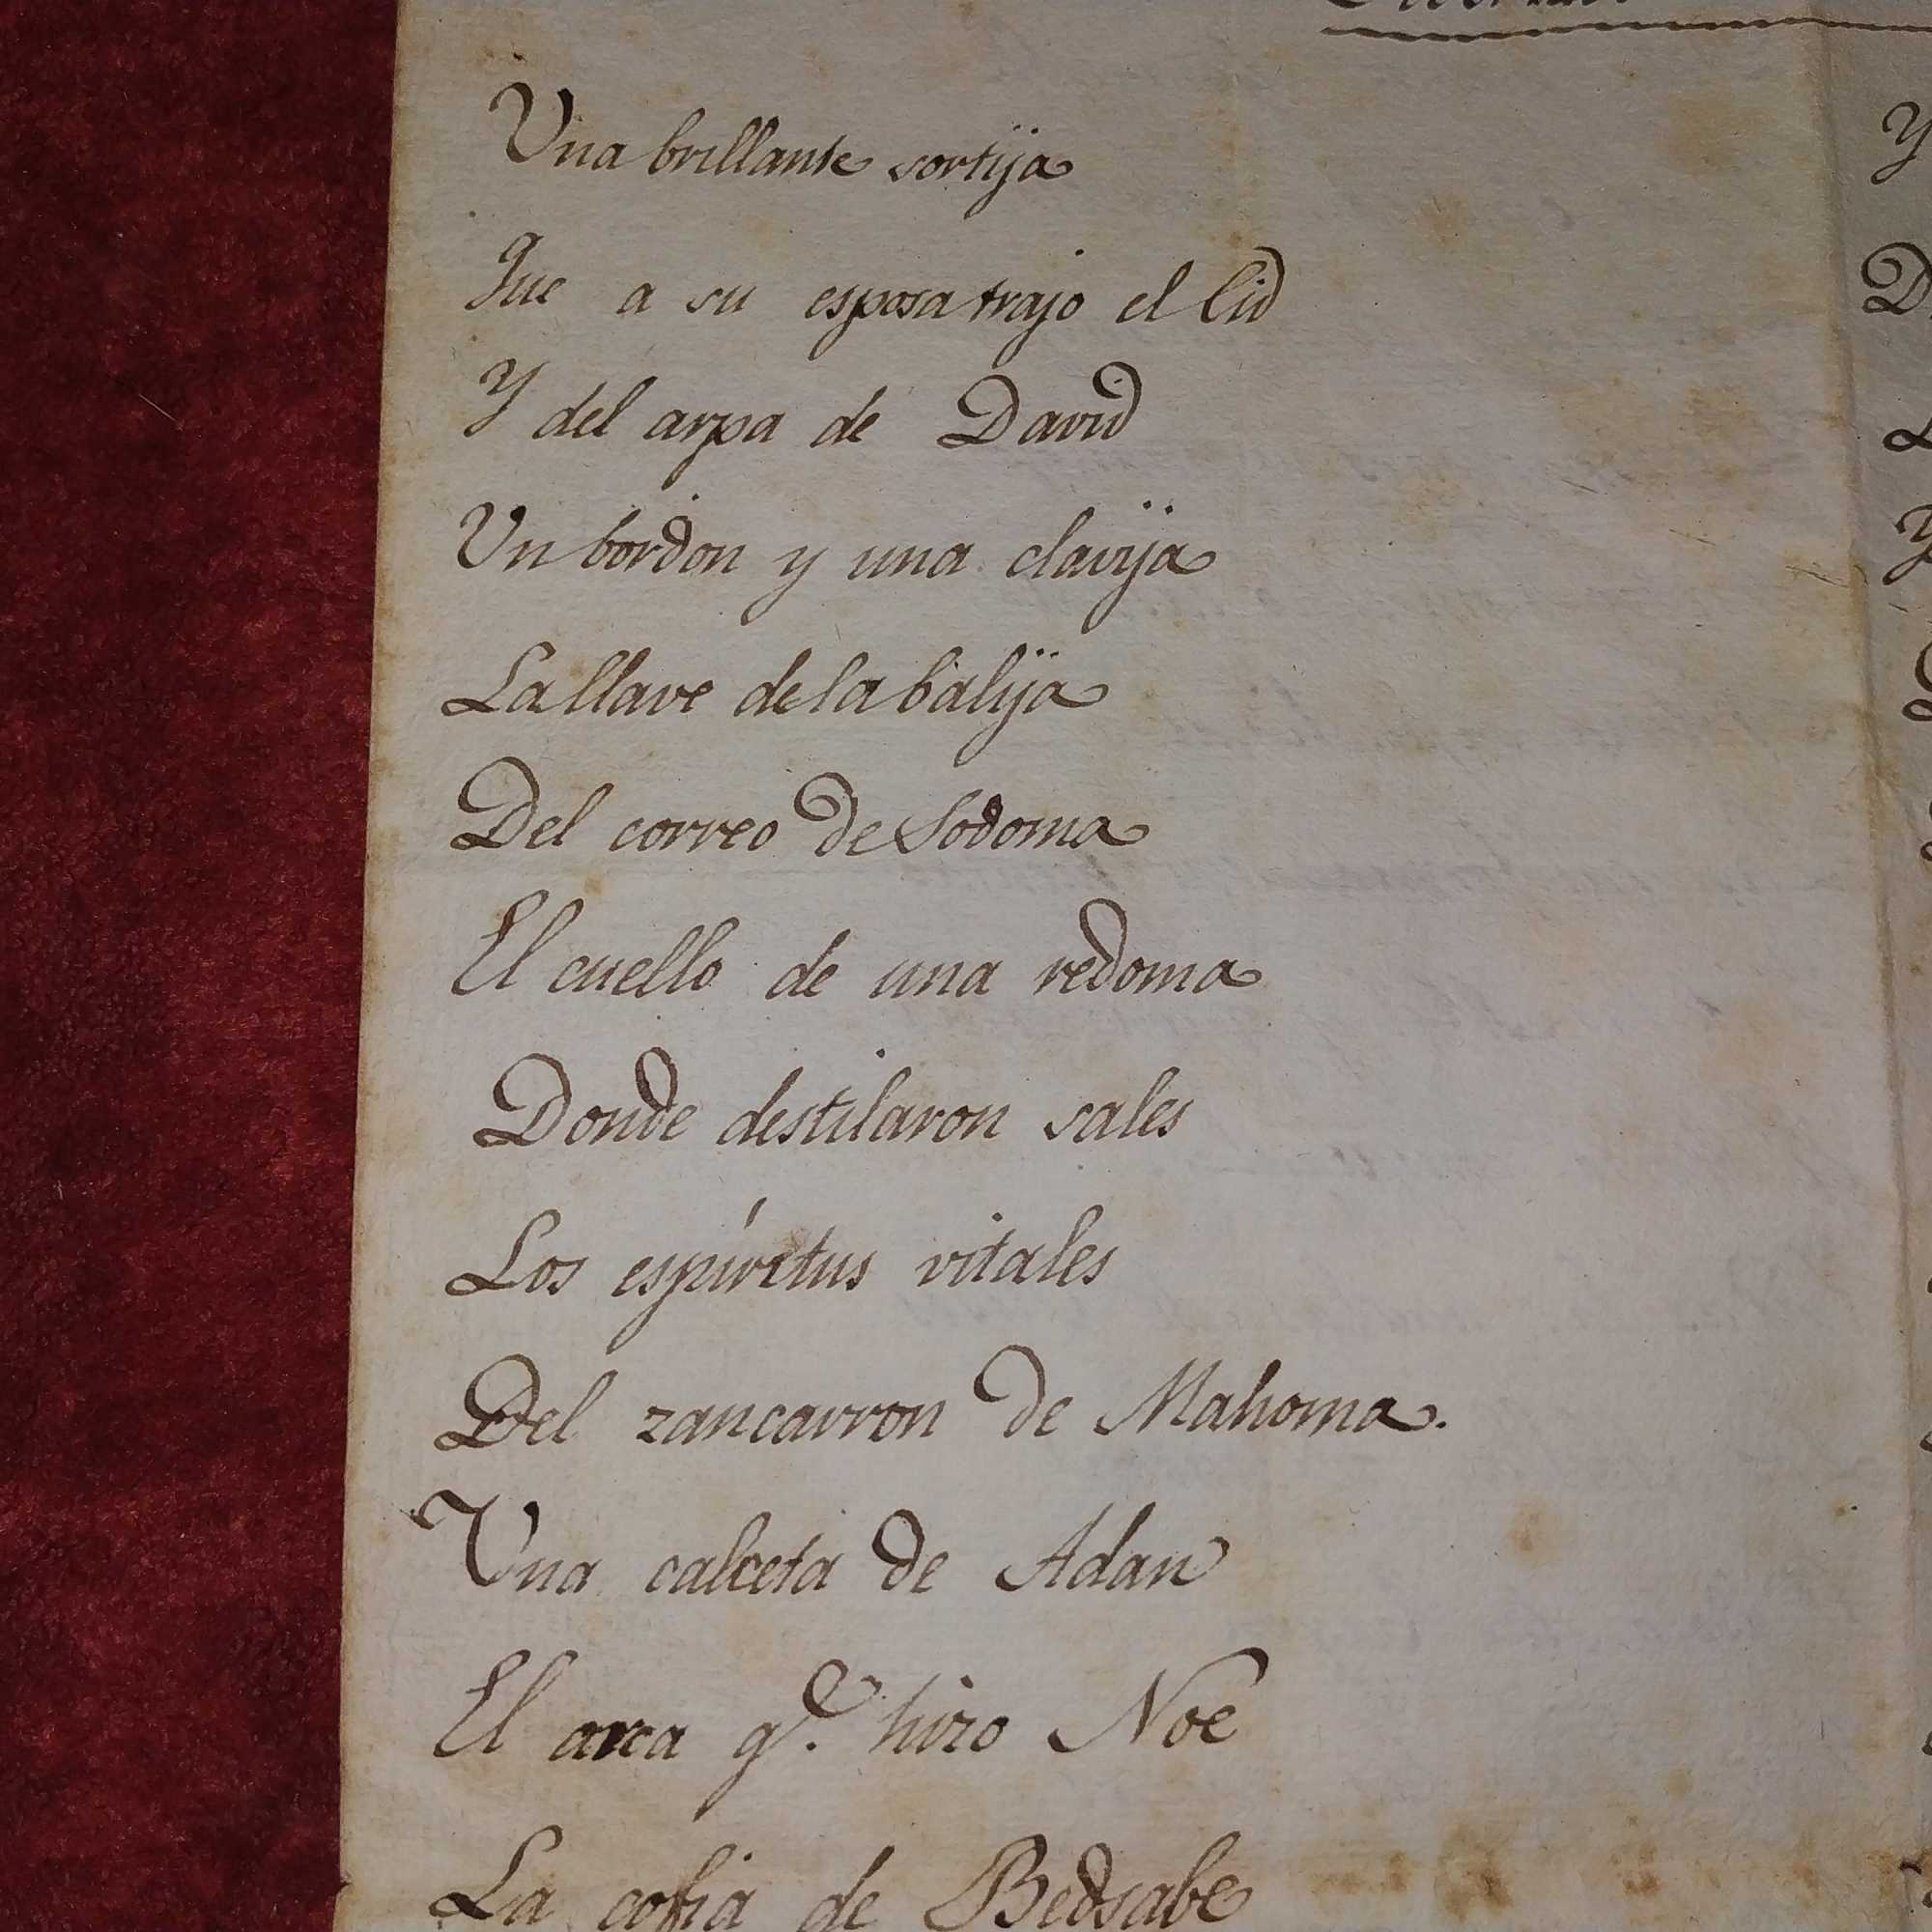 Una brillante sortija
Que a su esposa trajo el Cid
Y del arpa de David
Un bordon y una clavija
La llave de la balija
Del correo de Sodoma
El cuello de una redoma
Donde destilaron sales
Los espíretus vitales
Del zancarron de Mahoma.
Una calceta de Adan
El arca q.e hizo Noe
La cofia de Bedsabe